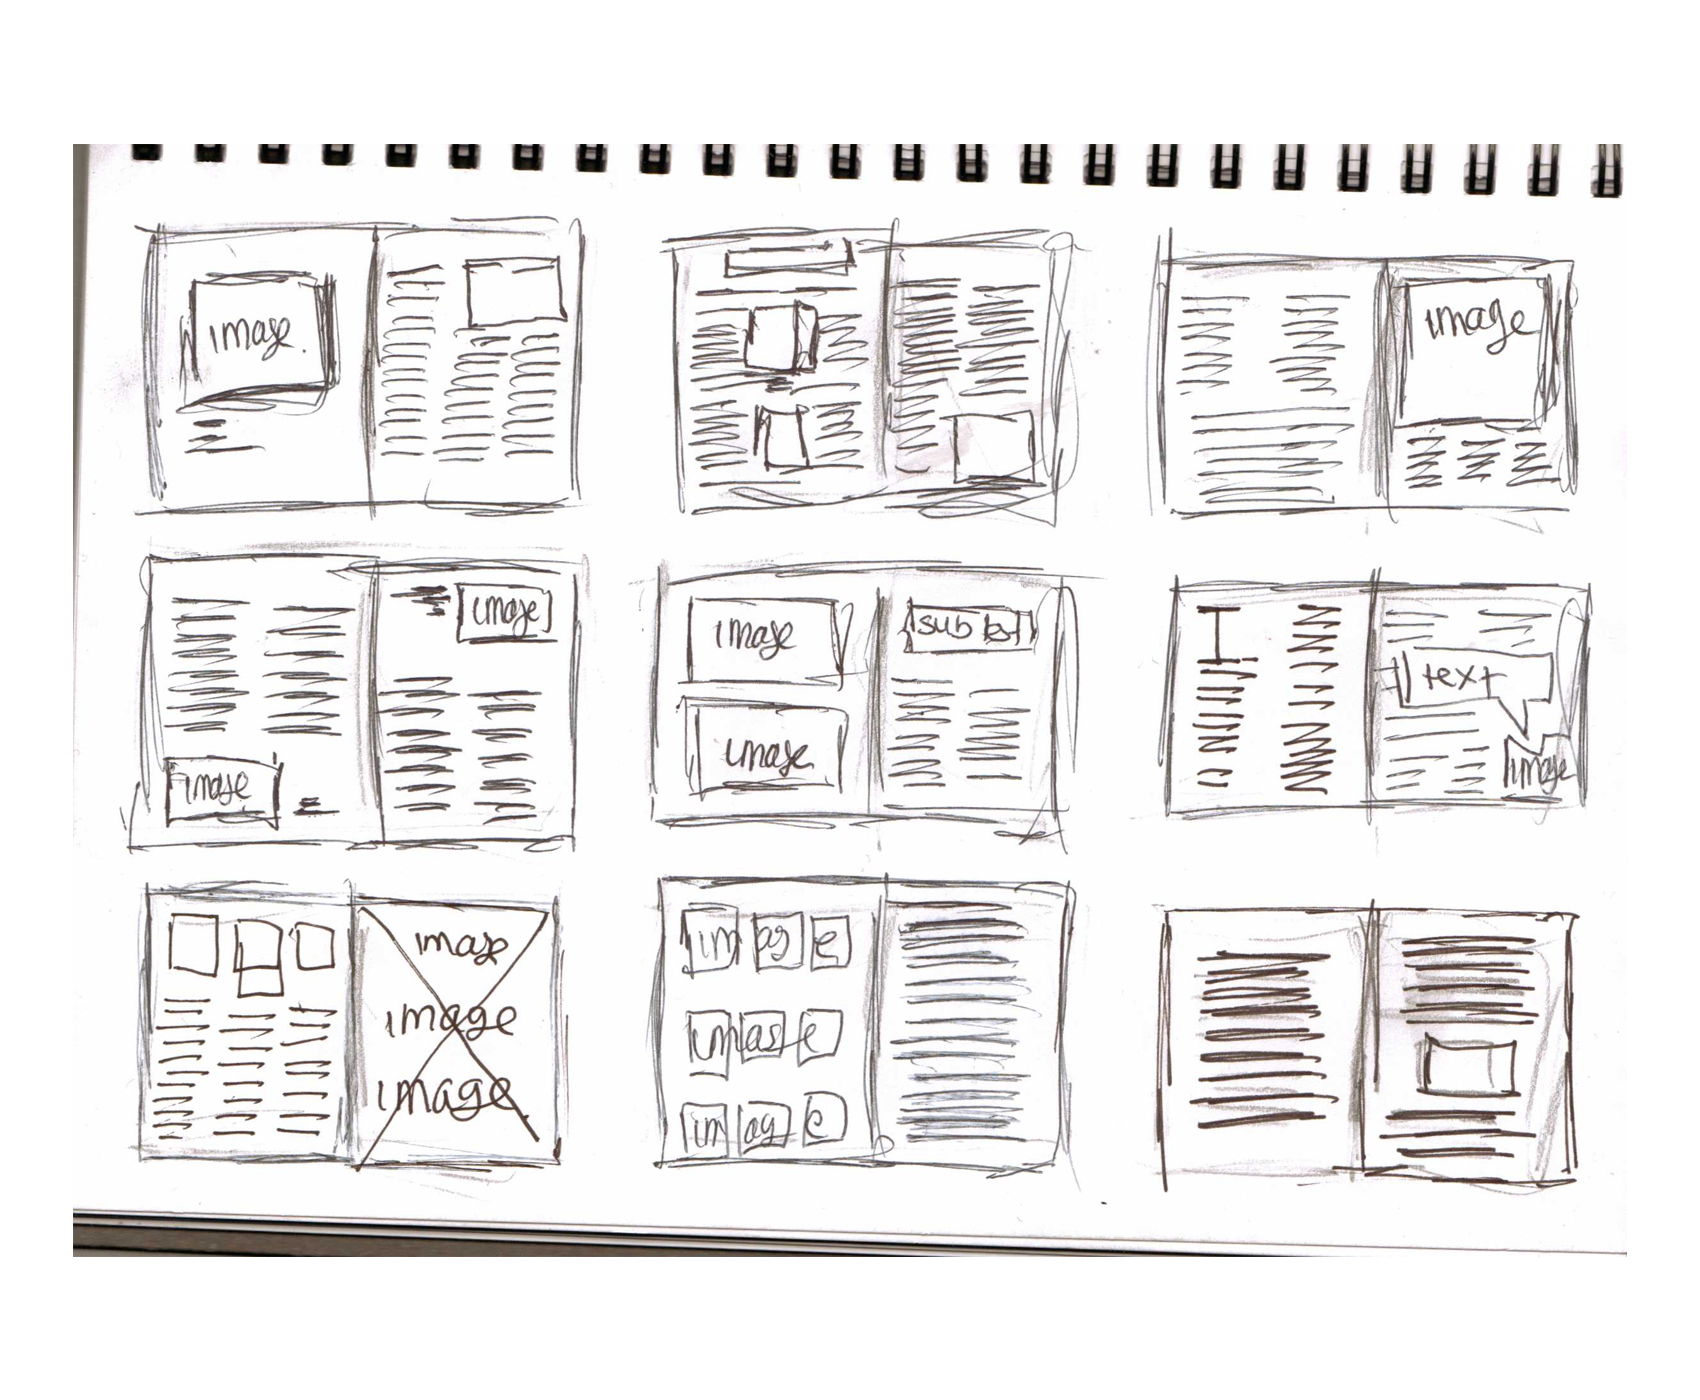 image.
image
image
image
image
image
text
image
image
image
image
im ag e
im ag e
im ag e